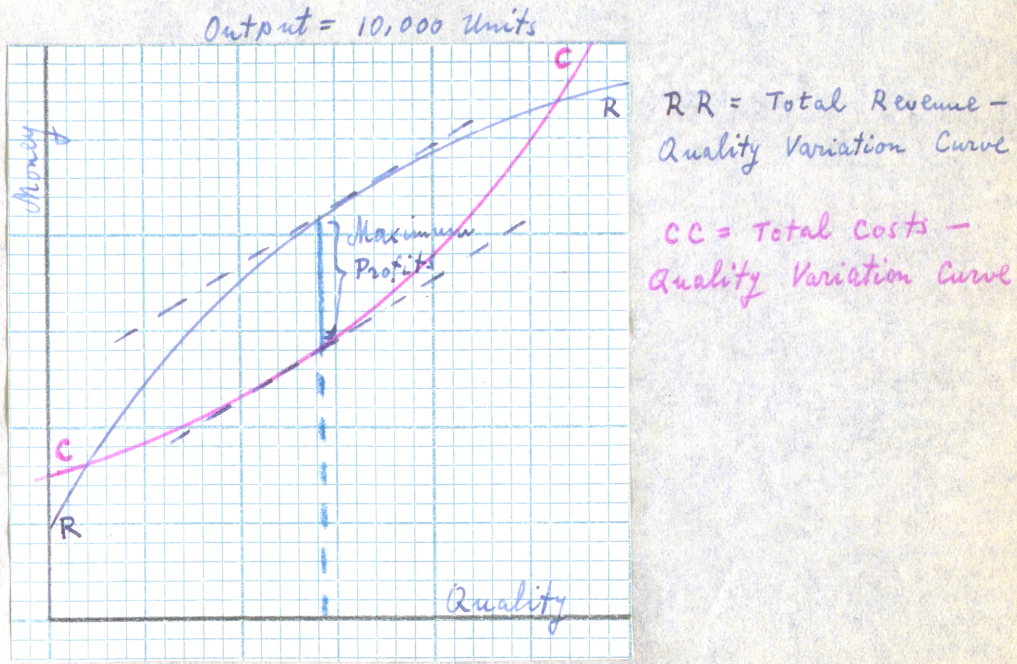 Output = 10,000 Units
C
R
Money
Maximum
Profits
C
R
Quality
RR = Total Revenue –
Quality Variation Curve
CC = Total Costs –
Quality Variation Curve